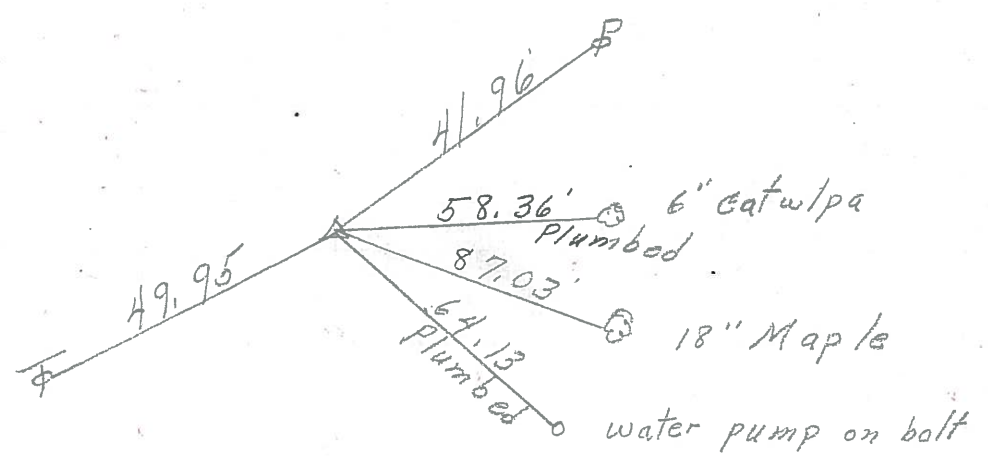 P
41.96'
58.36'
Plumbed
6" Catwlpa
87.03'
18" Maple
64.13
Plumbed
water pump on bolt
49.95'
T